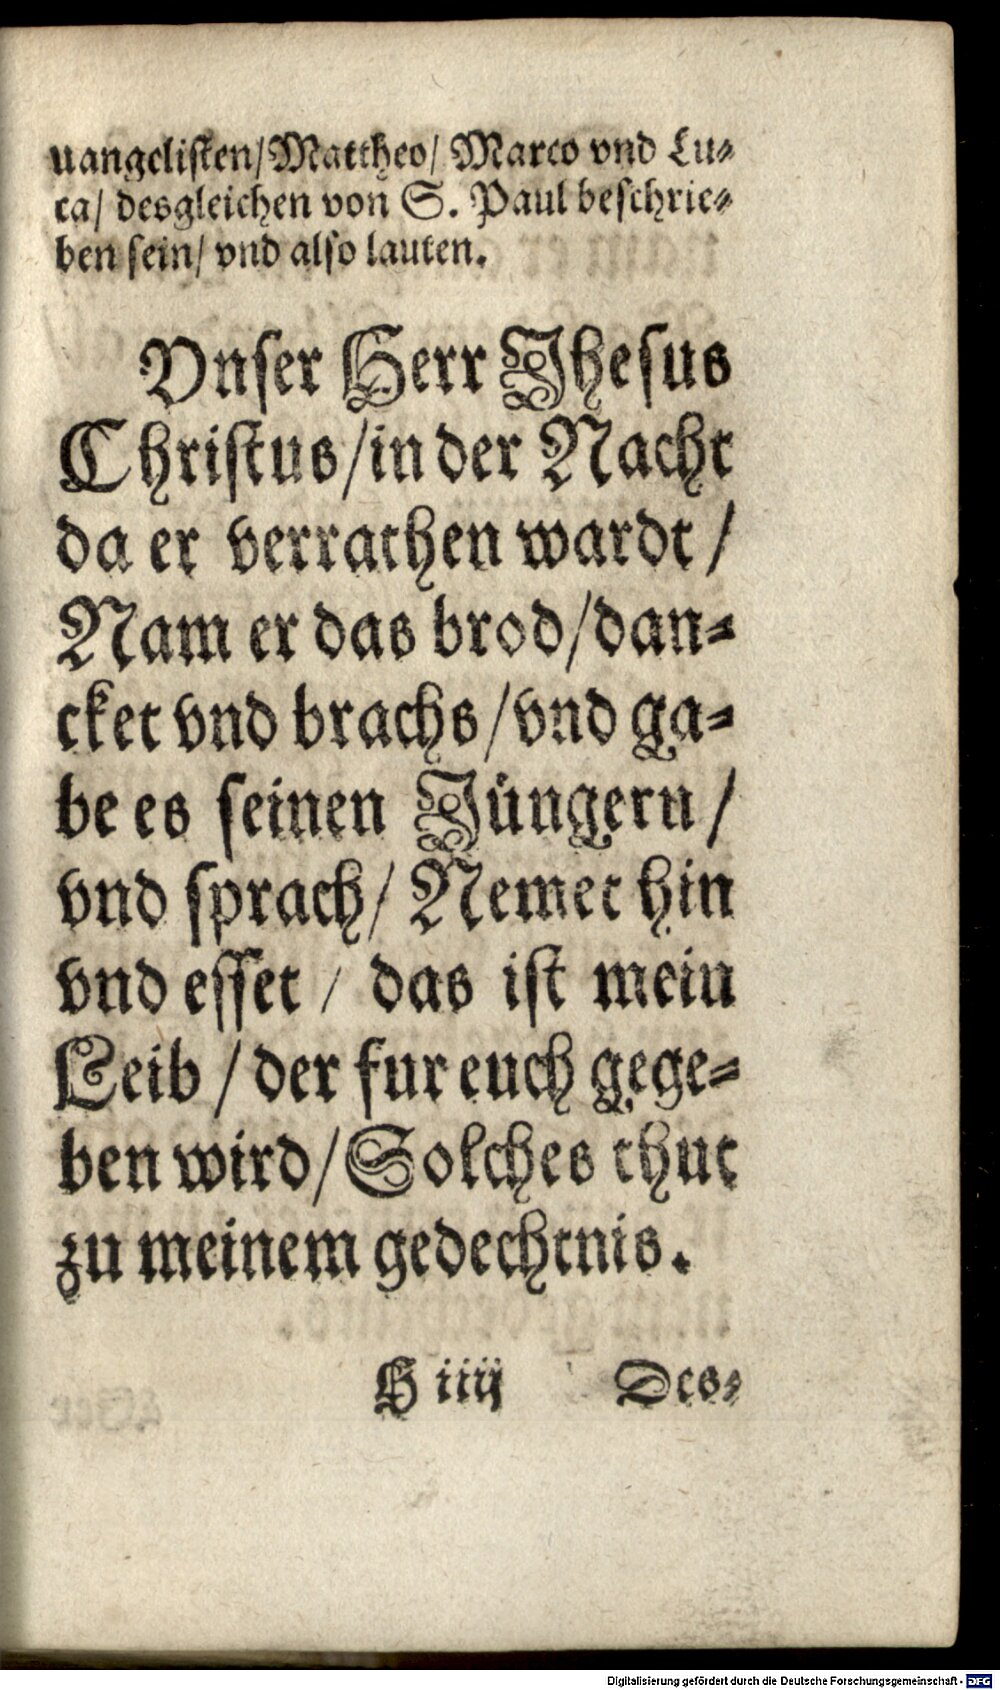 uangelisten/ Mattheo/ Marco vnd Lu⸗
ca/ desgleichen von S. Paul beschrie⸗
ben sein/ vnd also lauten.
Vnser Herr Jhesus
Christus/ in der Nacht
da er verrathen wardt /
Nam er das brod/ dan⸗
cket vnd brachs / vnd ga⸗
be es seinen Jüngern /
vnd sprach/ Nemet hin
vnd esset / das ist mein
Leib / der fur euch gege⸗
ben wird/ Solches thut
zu meinem gedechtnis.
H iiij Des⸗
Digitalisierung gefördert durch die Deutsche Forschungsgemeinschaft - DFG